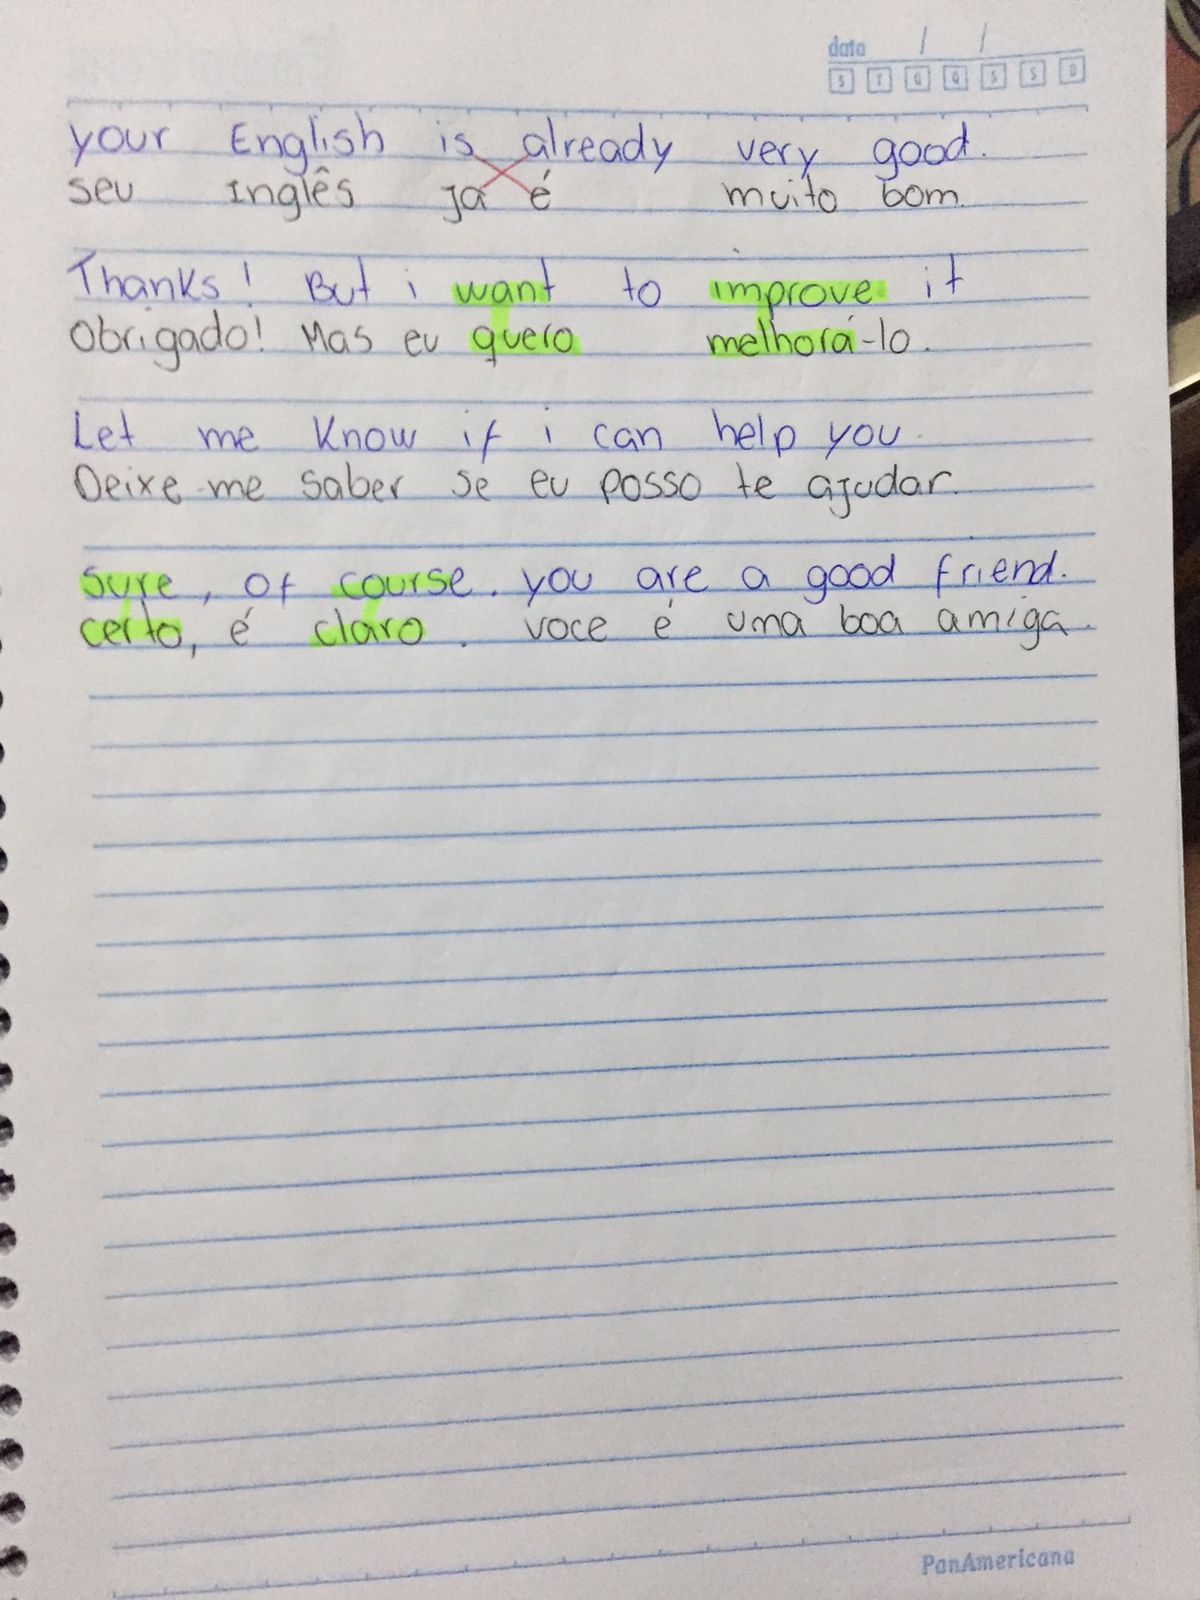 data / /
S T Q Q S S D
your English is already very good.
seu Inglês já é muito bom.
Thanks! But i want to improve it
Obrigado! Mas eu quero melhorá-lo.
Let me know if i can help you.
Deixe-me saber se eu posso te ajudar.
Sure, of course. you are a good friend.
certo, é claro. voce é uma boa amiga.
PanAmericana